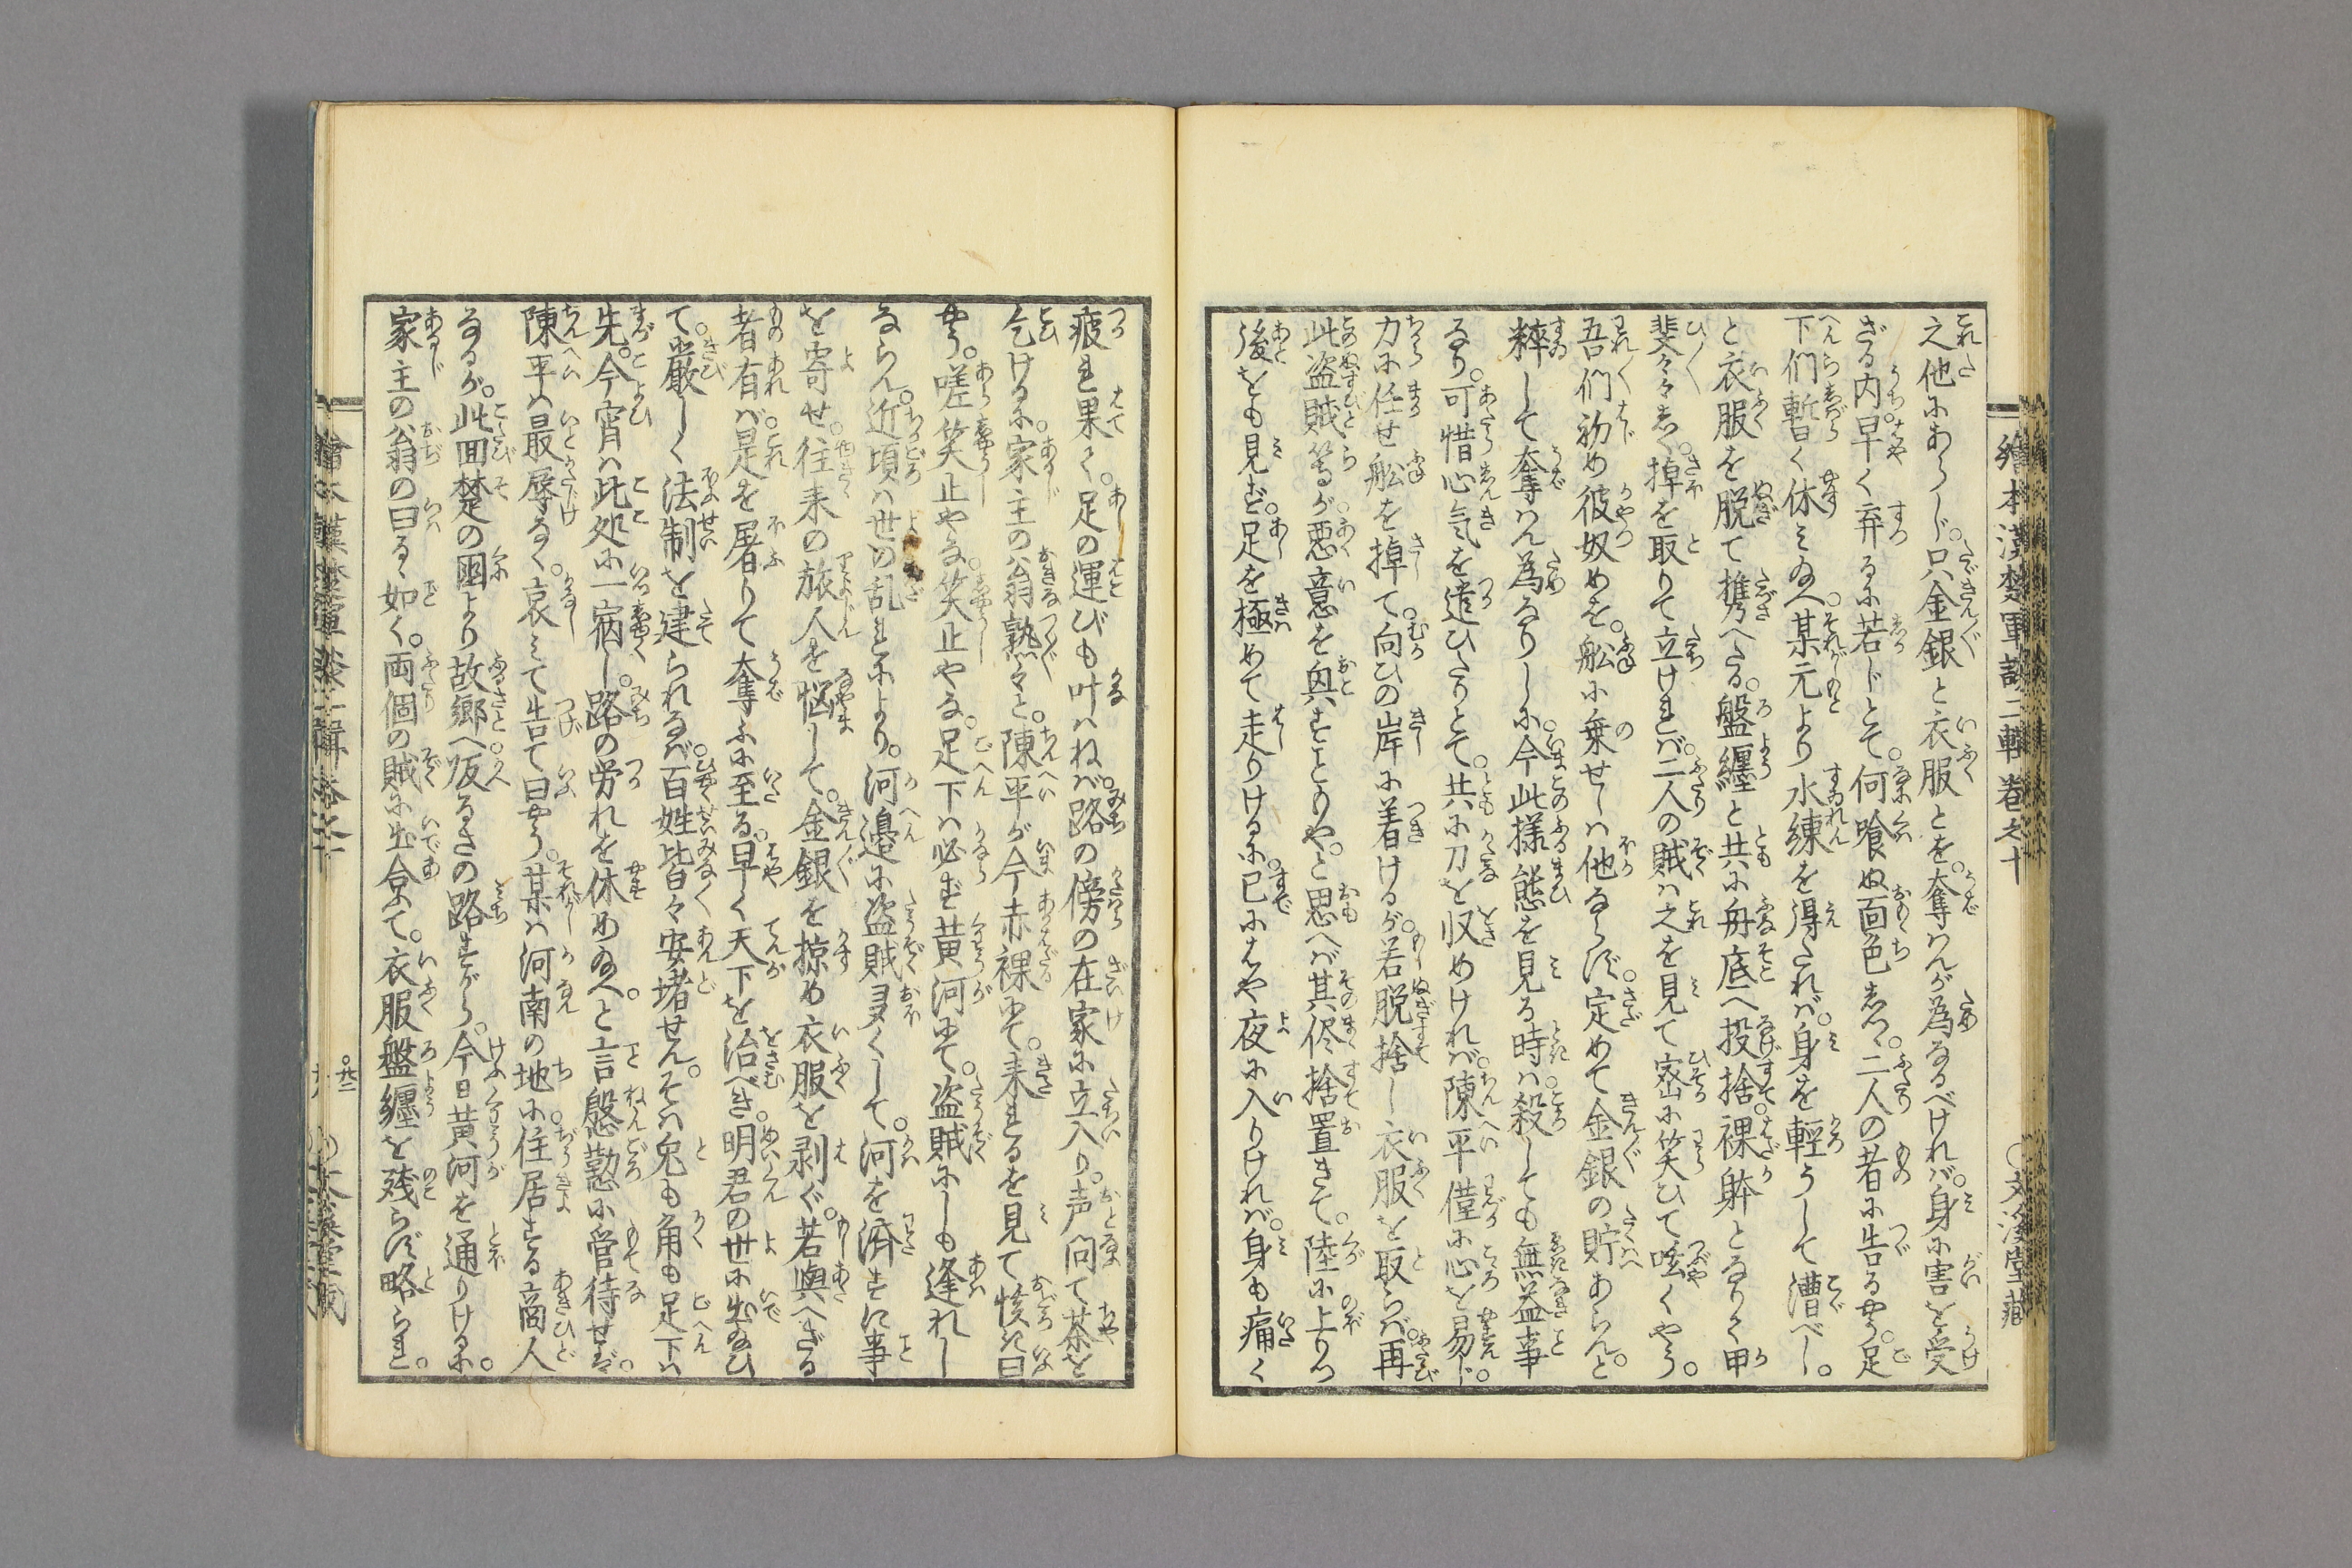 繪本漢楚軍談二輯卷之十
文溪堂藏
之他にあらじ。只金銀と衣服とを。奪はんが為なるべければ。身に害を受
ざる内。早く弃るに若じとて。何喰ぬ面色しつ。二人の者に告るやう。足
下們暫く休み給へ。某元より水練を得たれば。身を輕うして漕べし。
と衣服を脱て携へたる。盤纏と共に舟底へ投捨。裸躰となりて甲
斐々々しく。棹を取りて立ければ。二人の賊は之を見て窃に笑ひて呟くやう。
吾們初め彼奴めを。舩に乗せしは他ならず。定めて金銀の貯あらんと
粹して奪はん為なりしに。今此様態を見る時は。殺しても無益事
なり。可惜心気を遣ひたりとて。共に刀を収めければ。陳平僅に心を易じ。
力に任せ舩を棹て。向ひの岸に着けるが。若脱捨し衣服を取らば。再
此盗賊等が。悪意を與すことりや。と思へば其侭捨置きて。陸に上りつ
後をも見ず。足を極めて走りけるに。已にはや夜に入りければ。身も痛く
疲れ果て。足の運びも叶はねば。路の傍の在家に立入り。声問て茶を
乞けるに。家主の翁熟々と。陳平が今赤裸にて。来れるを見て㤥き曰
やう。嗟笑止やな。笑止やな。足下は必ず黄河にて。盗賊にしも逢れし
ならん。近頃は世の乱れにより。河邉に盗賊多くして。河を済すに事
を寄せ。往来の旅人を悩して。金銀を掠め衣服を剥ぐ。若與へざる
者有ば。是を屠りて奪ふに至る。早く天下を治べき。明君の世に出給ひ
て。厳しく法制を建られなば。百姓皆々安堵せん。そは兎も角も足下は
先。今宵は此処に一宿し。路の労れを休め給へ。と言慇懃に管待せば。
陳平は最辱なく。哀みて告て曰やう。某は河南の地に。住居する商人
なるが。此回楚の国より故郷へ。皈るさの路すがら。今日黄河を通りけるに。
家主の翁の曰るゝ如く。両個の賊に出合て。衣服盤纏を残らず略られ。